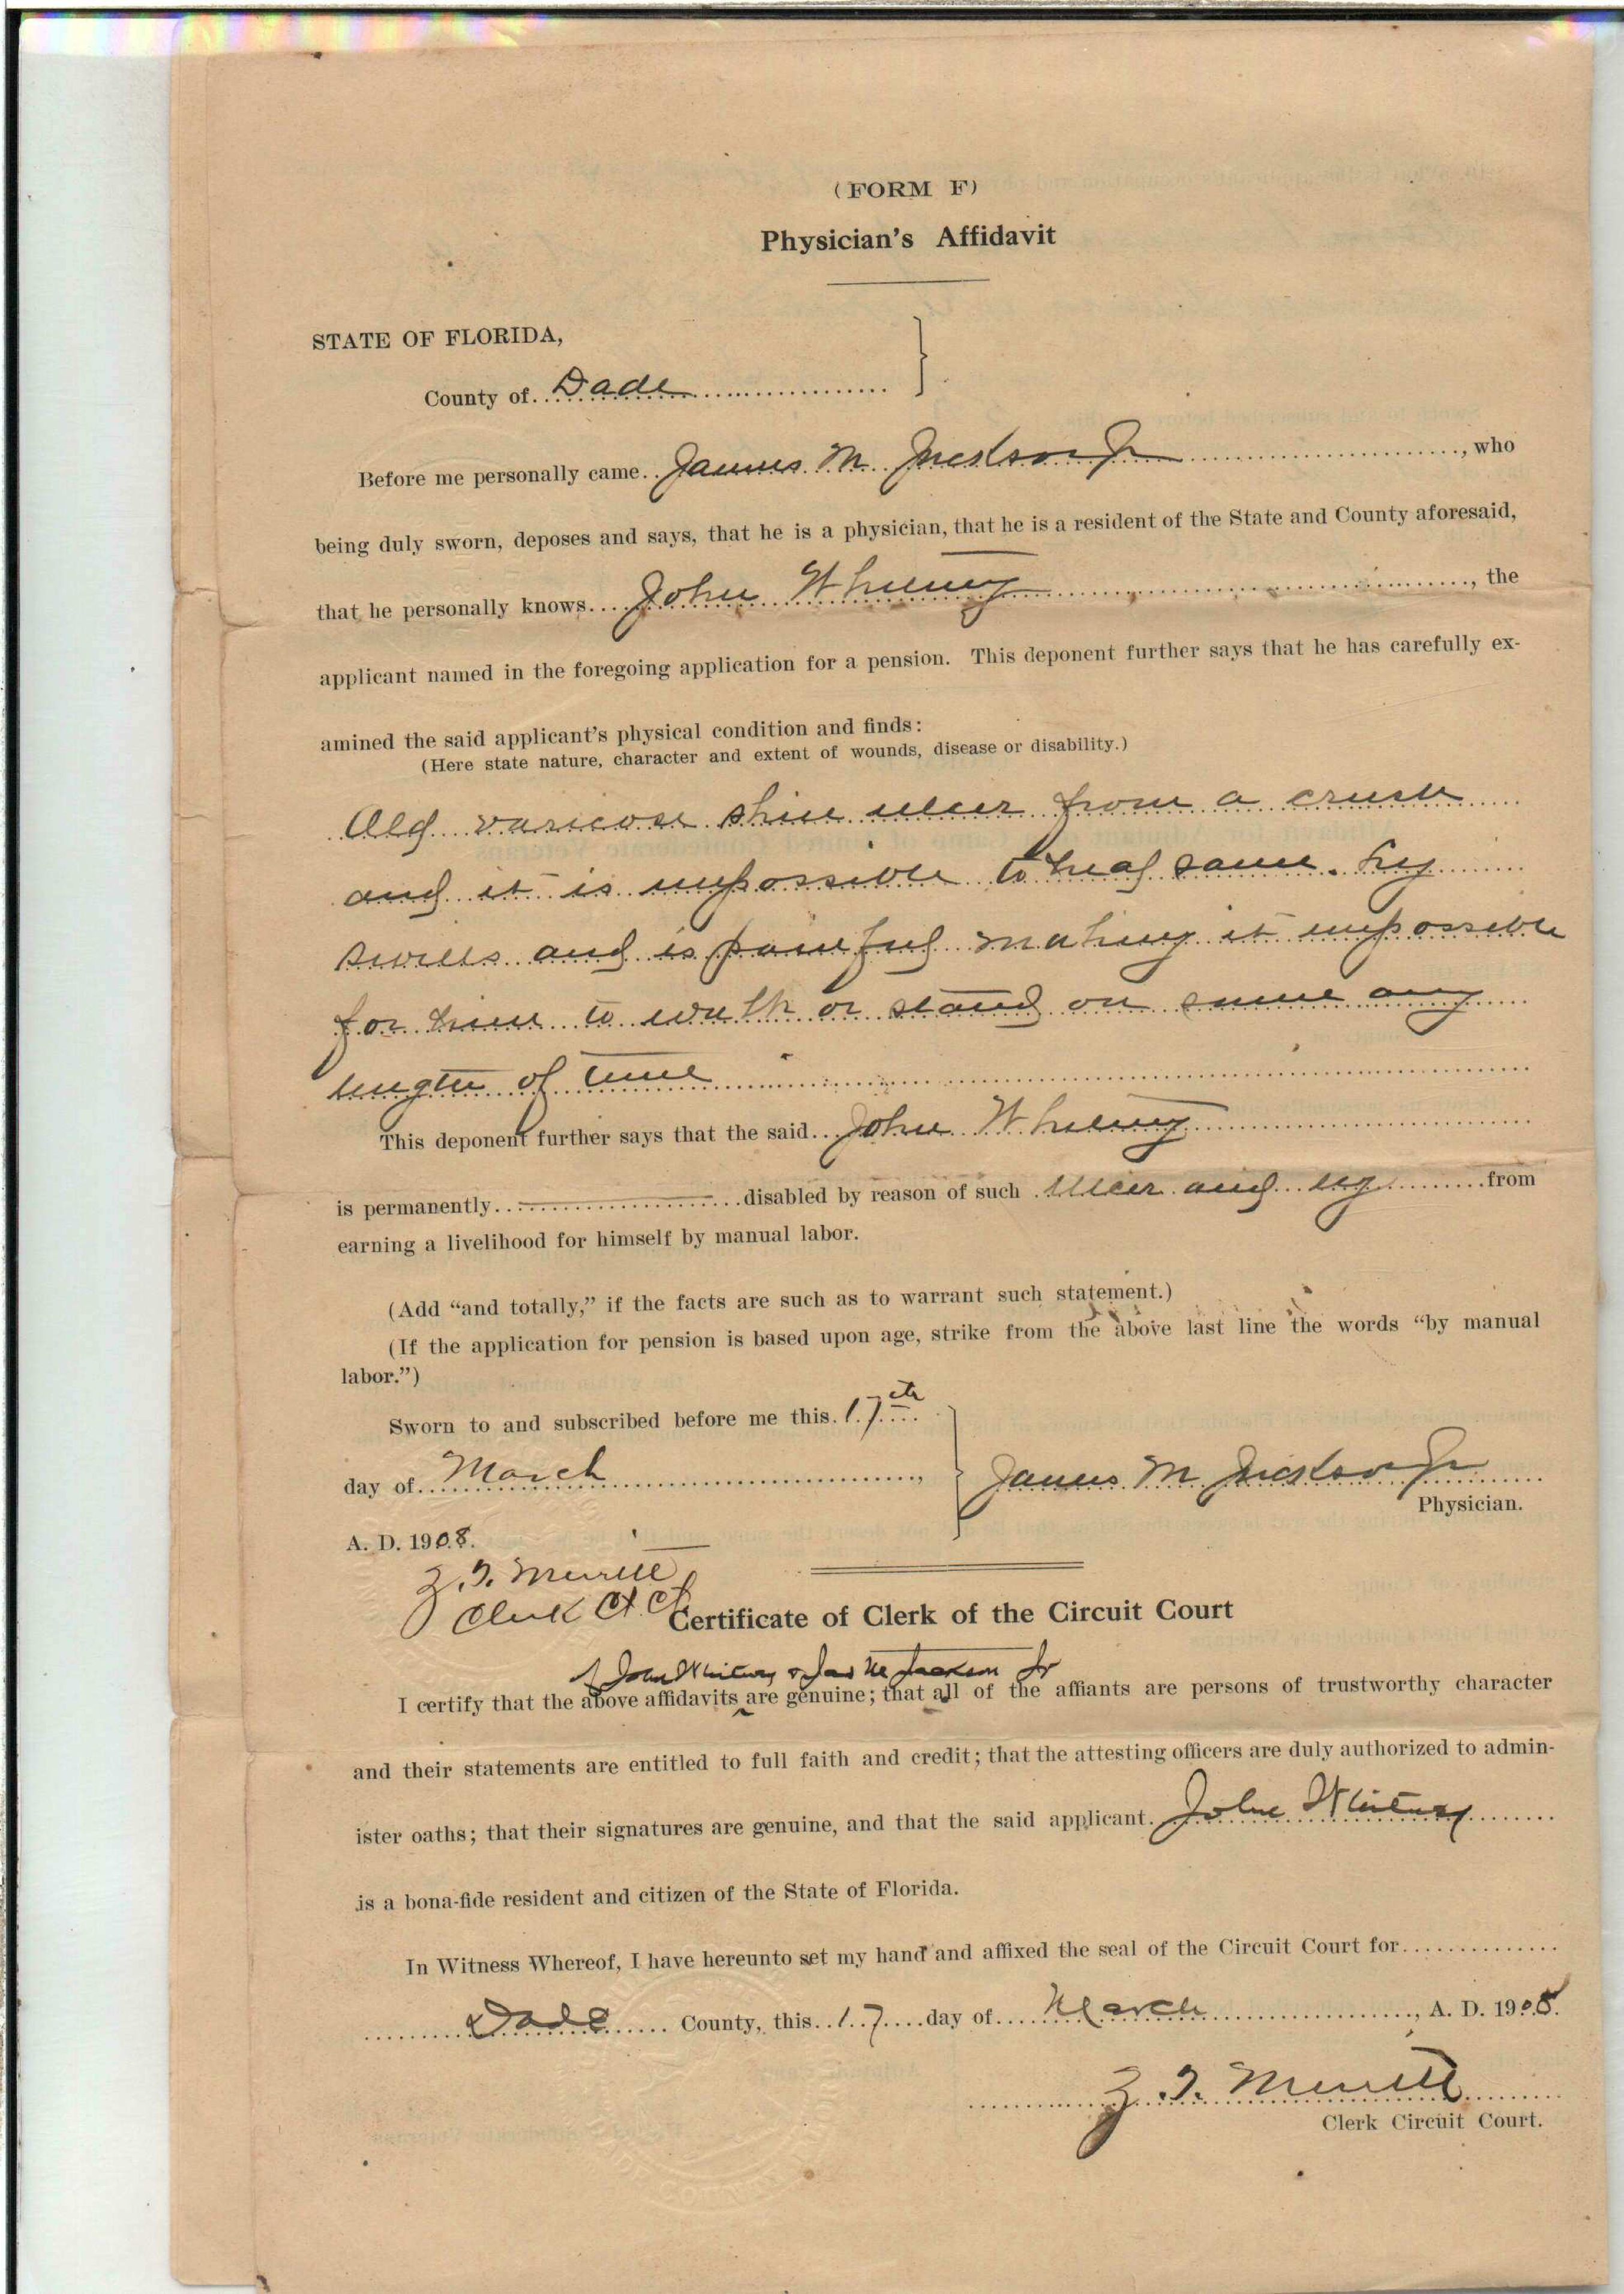 (FORM F)
Physician's Affidavit
STATE OF FLORIDA,
County of Dade
Before me personally came James M. Jackson Jr, who
being duly sworn, deposes and says, that he is a physician, that he is a resident of the State and County aforesaid,
that he personally knows John Whitney, the
applicant named in the foregoing application for a pension. This deponent further says that he has carefully ex-
amined the said applicant's physical condition and finds:
(Here state nature, character and extent of wounds, disease or disability.)
Old varicose shin ulcer from a crush
and it is impossible to heal same. Leg
swells and is painful making it impossible
for him to walk or stand on same any
length of time
This deponent further says that the said John Whitney
is permanently disabled by reason of such ulcer and leg from
earning a livelihood for himself by manual labor.
(Add "and totally," if the facts are such as to warrant such statement.)
(If the application for pension is based upon age, strike from the above last line the words "by manual
labor.")
Sworn to and subscribed before me this 17th
day of March,
James M Jackson Jr
Physician.
A. D. 1908.
Z. T. Merritt
Clerk Ct. Ct.
Certificate of Clerk of the Circuit Court
of John Whitney & Jas M Jackson Jr
I certify that the above affidavits are genuine; that all of the affiants are persons of trustworthy character
and their statements are entitled to full faith and credit; that the attesting officers are duly authorized to admin-
ister oaths; that their signatures are genuine, and that the said applicant John Whitney
is a bona-fide resident and citizen of the State of Florida.
In Witness Whereof, I have hereunto set my hand and affixed the seal of the Circuit Court for
Dade County, this 17 day of March, A. D. 1908.
Z. T. Merritt
Clerk Circuit Court.